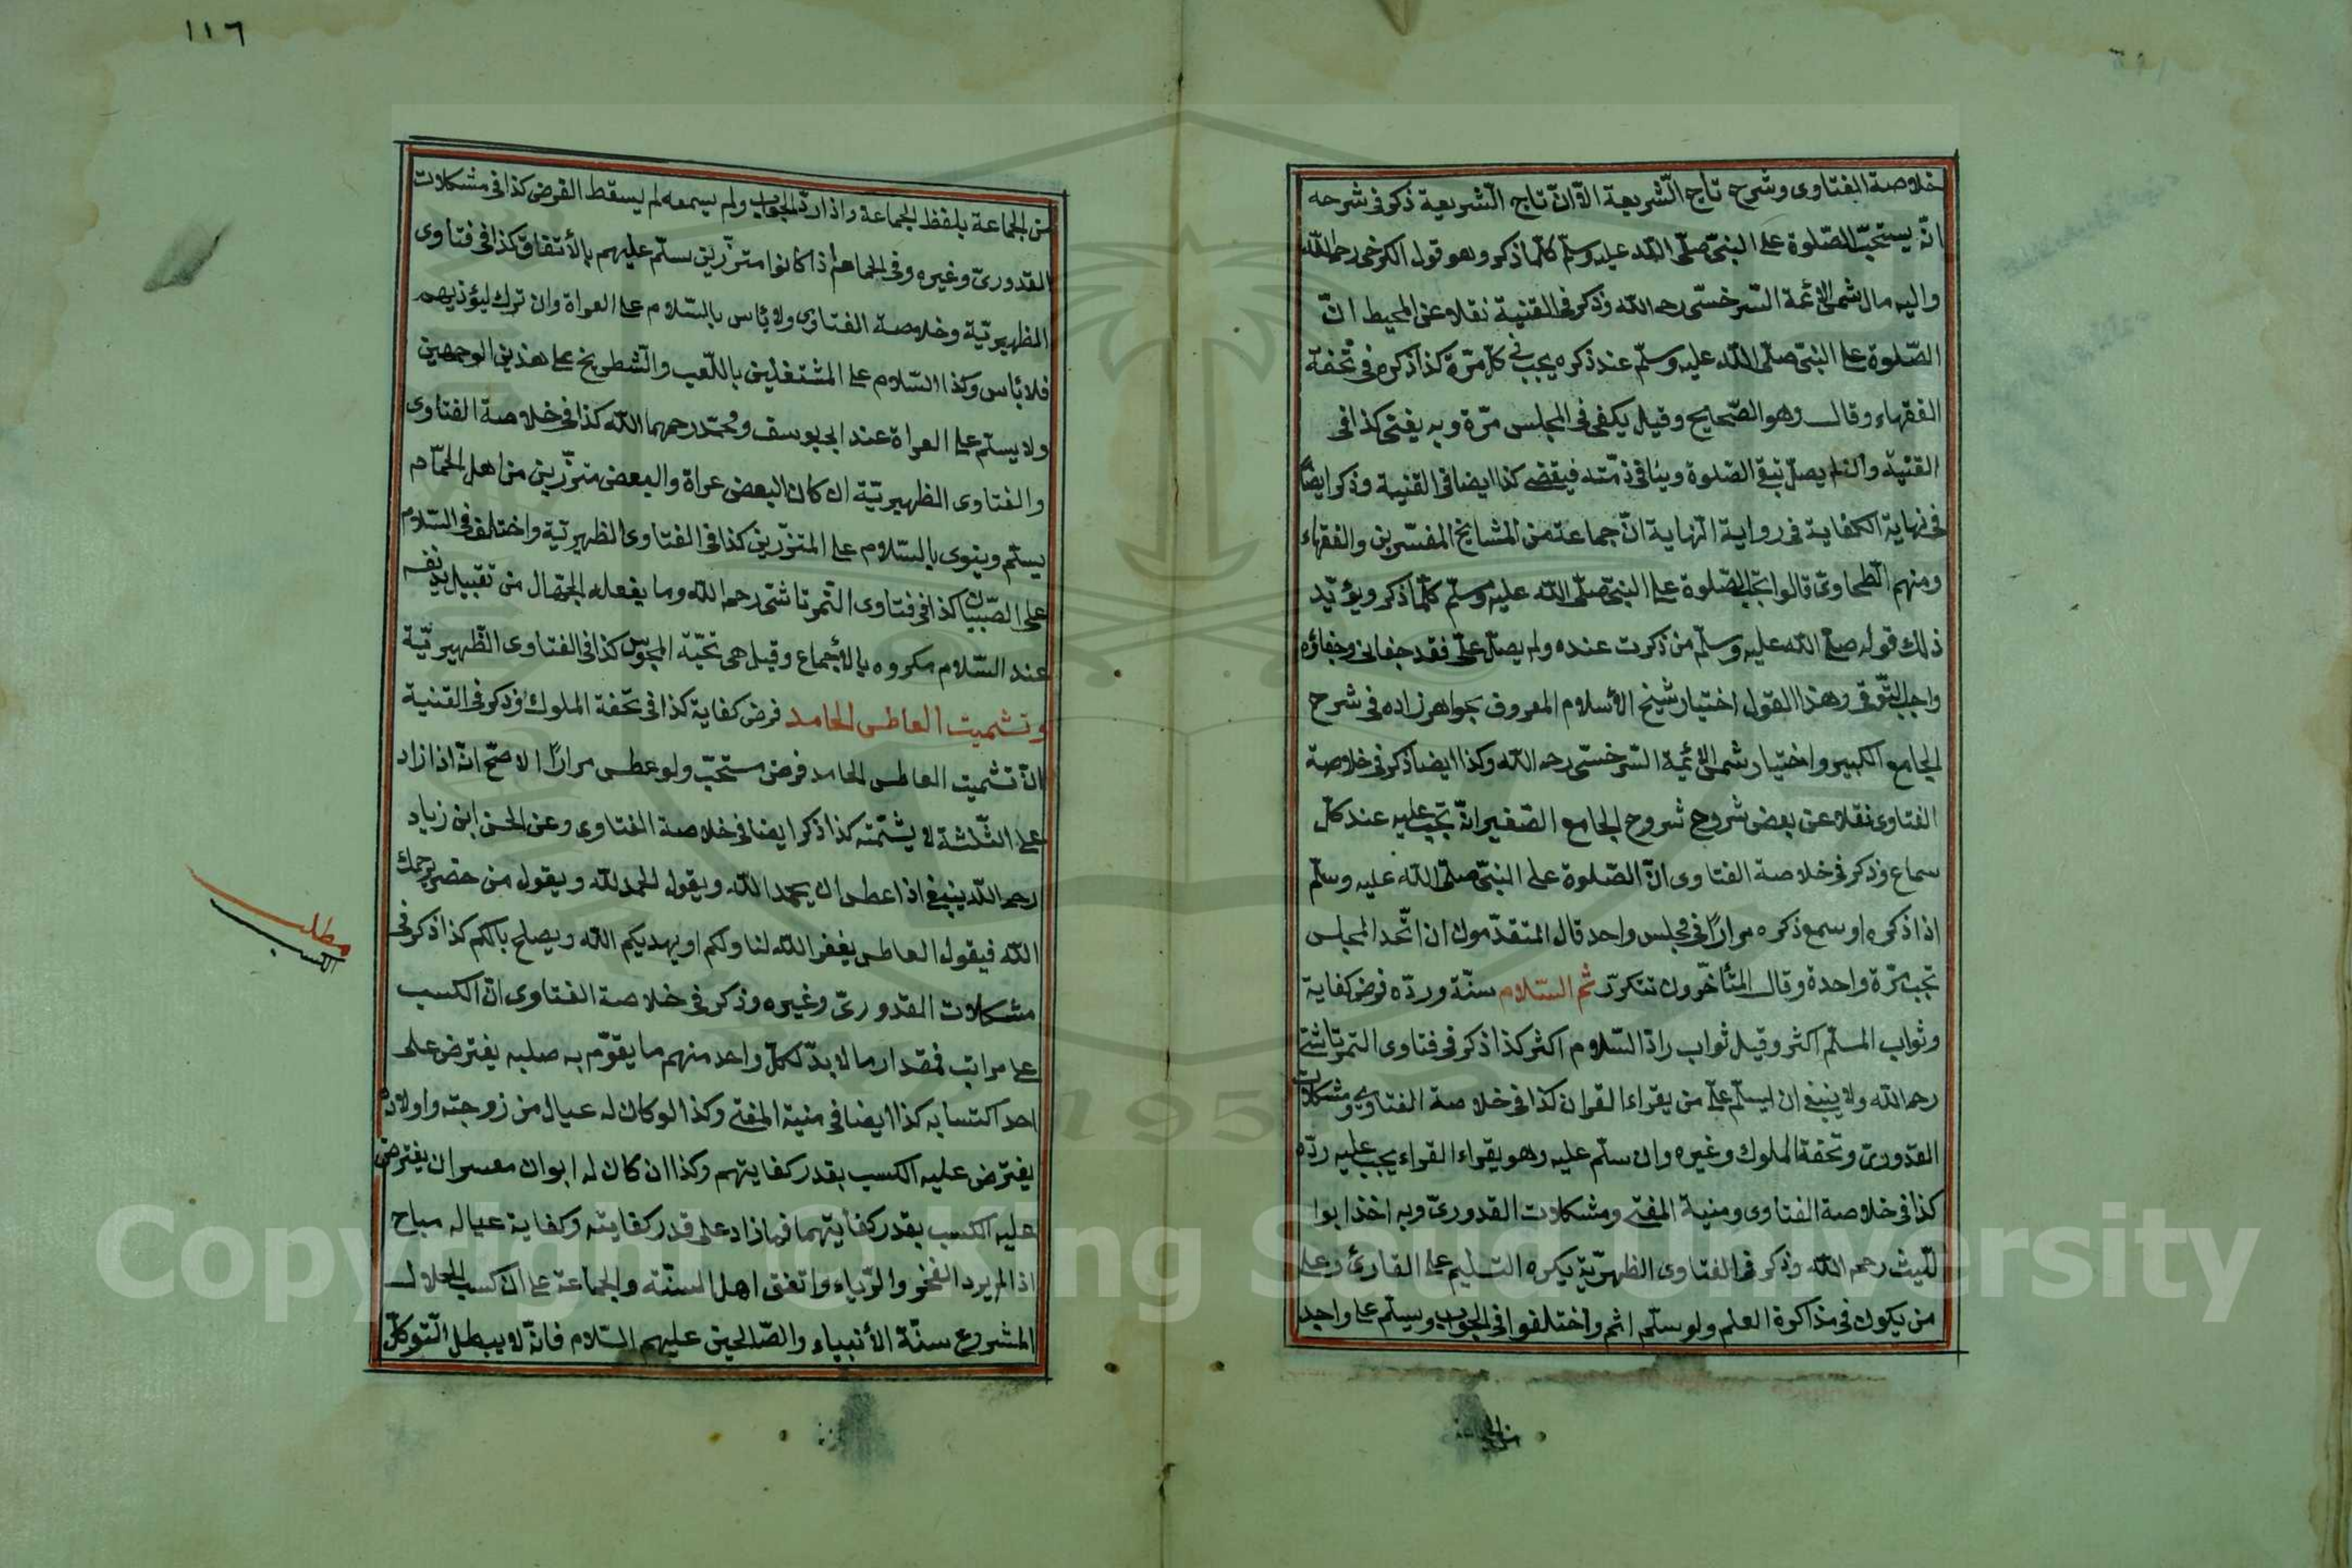 خلاصة الفتاوى وشرح تاج الشّريعة الّا انّ تاج الشّريعة ذكر فى شرحه
انّه يستحبّ الصّلوة على النبىّ صلّى اللّه عليه وسلّم كلّما ذكر وهو قول الكرخى رحمه اللّه
واليه مال شمس الائمة السّرخسّى رحمه اللّه وذكر فى القنية نقلا عن المحيط انّ
الصّلوة على النبىّ صلّى اللّه عليه وسلّم عند ذكره يجب فى كلّ مرّة كذا ذكره فى تحفة
الفقهاء وقال وهو الصّحايح وقيل يكفى فى المجلس مرّة وبه يفتى كذا فى
القنية وان لم يصلّ تبقى الصّلوة دينا فى ذمّته فيقضى كذا ايضا فى القنية وذكر ايضا
فى نهاية الكفاية فى رواية النّهاية انّ جماعة من المشايخ المفسّرين والفقهاء
ومنهم الطّحاوىّ قالوا تجب الصّلوة على النبىّ صلّى اللّه عليه وسلّم كلّما ذكر ويؤيّد
ذلك قوله صلّى اللّه عليه وسلّم من ذكرت عنده ولم يصلّ علىّ فقد جفانى وجفاؤه
واجب التّوقى وهذا القول اختيار شيخ الأسلام المعروف بجواهر زاده فى شرح
الجامع الكبير واختيار شمس الائمة السّرخسّى رحمه اللّه وكذا ايضا ذكر فى خلاصة
الفتاوى نقلا عن بعض شروح شروح الجامع الصّغير انّه تجب عليه عند كلّ
سماع وذكر فى خلاصة الفتاوى انّ الصّلوة على النبىّ صلّى اللّه عليه وسلّم
اذا ذكره او سمع ذكره مرارًا فى مجلس واحد قال المتقدّمون ان اتّحد المجلس
تجب مرّة واحدة وقال المتأخّرون تتكرّر ثم السّلام سنّة وردّه فرض كفاية
وثواب المسلّم اكثر وقيل ثواب رادّ السّلام اكثر كذا ذكر فى فتاوى التمرتاشىّ
رحمه اللّه ولا ينبغى ان يسلّم على من يقراء القران كذا فى خلاصة الفتاوى ومشكلات
القدورىّ وتحفة الملوك وغيره وان سلّم عليه وهو يقراء القراء يجب عليه ردّه
كذا فى خلاصة الفتاوى ومنية المفتى ومشكلات القدورىّ وبه اخذ ابوا
للّيث رحمه اللّه وذكر فى الفتاوى الظهيريّة يكره التسليم على القارئ وعلى
من يكون فى مذاكرة العلم ولو سلّم اثم واختلفوا فى الجواب ويسلّم على واحد
من الجماعة
١١٦
من الجماعة بلفظ الجماعة واذا ردّ الجواب ولم يسمعه لم يسقط الفرض كذا فى مشكلات
القدورىّ وغيره وفى الحمّام اذا كانوا متزّرين سلّم عليهم بالأتفاق كذا فى فتاوى
الظهيريّة وخلاصة الفتاوى ولا بأس بالسّلام على العراة وان ترك ليؤذيهم
فلا بأس وكذا السّلام على المشتغلين باللّعب والشّطرنج على هذين الوجهين
ولا يسلّم على العراة عند ابى يوسف ومحمّد رحمهما اللّه كذا فى خلاصة الفتاوى
والفتاوى الظهيريّة ان كان البعض عراة والبعض متزّرين من اهل الحمّام
يسلّم وينوى بالسّلام على المتزّرين كذا فى الفتاوى الظهيريّة واختلف فى السّلام
على الصّبيان كذا فى فتاوى التّمرتاشى رحمه اللّه وما يفعله الجهّال من تقبيل يد نفسه
عند السّلام مكروه بالأجماع وقيل هى تحيّة المجوس كذا فى الفتاوى الظّهيريّة
وتشميت العاطس الحامد فرض كفاية كذا فى تحفة الملوك وذكر فى القنية
انّ تشميت العاطس الحامد فرض مستحبّ ولو عطس مرارًا الاصحّ انّه اذا زاد
على الثّلثة لا يشمّته كذا ذكر ايضا فى خلاصة الفتاوى وعن الحسن ابن زياد
رحمه اللّه ينبغى اذا عطس ان يحمد اللّه ويقول الحمد للّه ويقول من حضر يرحمك
اللّه فيقول العاطس يغفر اللّه لنا ولكم او يهديكم اللّه ويصلح بالكم كذا ذكر فى
مشكلات القدورىّ وغيره وذكر فى خلاصة الفتاوى انّ الكسب
على مراتب فمقدار ما لا بدّ لكلّ واحد منهم ما يقوّم به صلبه يفترض على
احد اكتسابه كذا ايضا فى منية المفتى وكذا لو كان له عيال من زوجته واولاده
يفترض عليه الكسب بقدر كفايتهم وكذا ان كان له ابوان معسران يفترض
عليه الكسب بقدر كفايتهما فما زاد على قدر كفايته وكفاية عياله مباح
اذا لم يرد الفخر والرّياء واتفق اهل السنّة والجماعة على انّ كسب الحلال
المشروع سنّة الأنبياء والصّالحين عليهم السّلام فانّه لا يبطل التّوكلّ
مطلب
الكسب
1957
Copyright © King Saud University